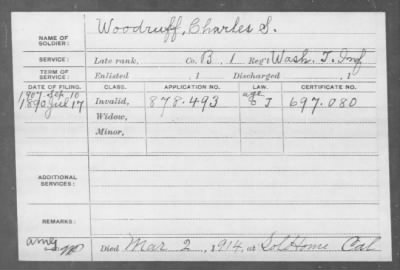 NAME OF SOLDIER: Woodruff, Charles S.
SERVICE: Late rank, Co. B, 1 Reg't Wash. T. Inf
TERM OF SERVICE: Enlisted , 1 Discharged , 1
DATE OF FILING. CLASS. APPLICATION NO. LAW. CERTIFICATE NO.
1907 Sep 10 age
1890 Jul 17 Invalid, 878.493 J 697.080
Widow,
Minor,
ADDITIONAL SERVICES:
REMARKS:
Died Mar 2, 1914, at Sol Home Cal